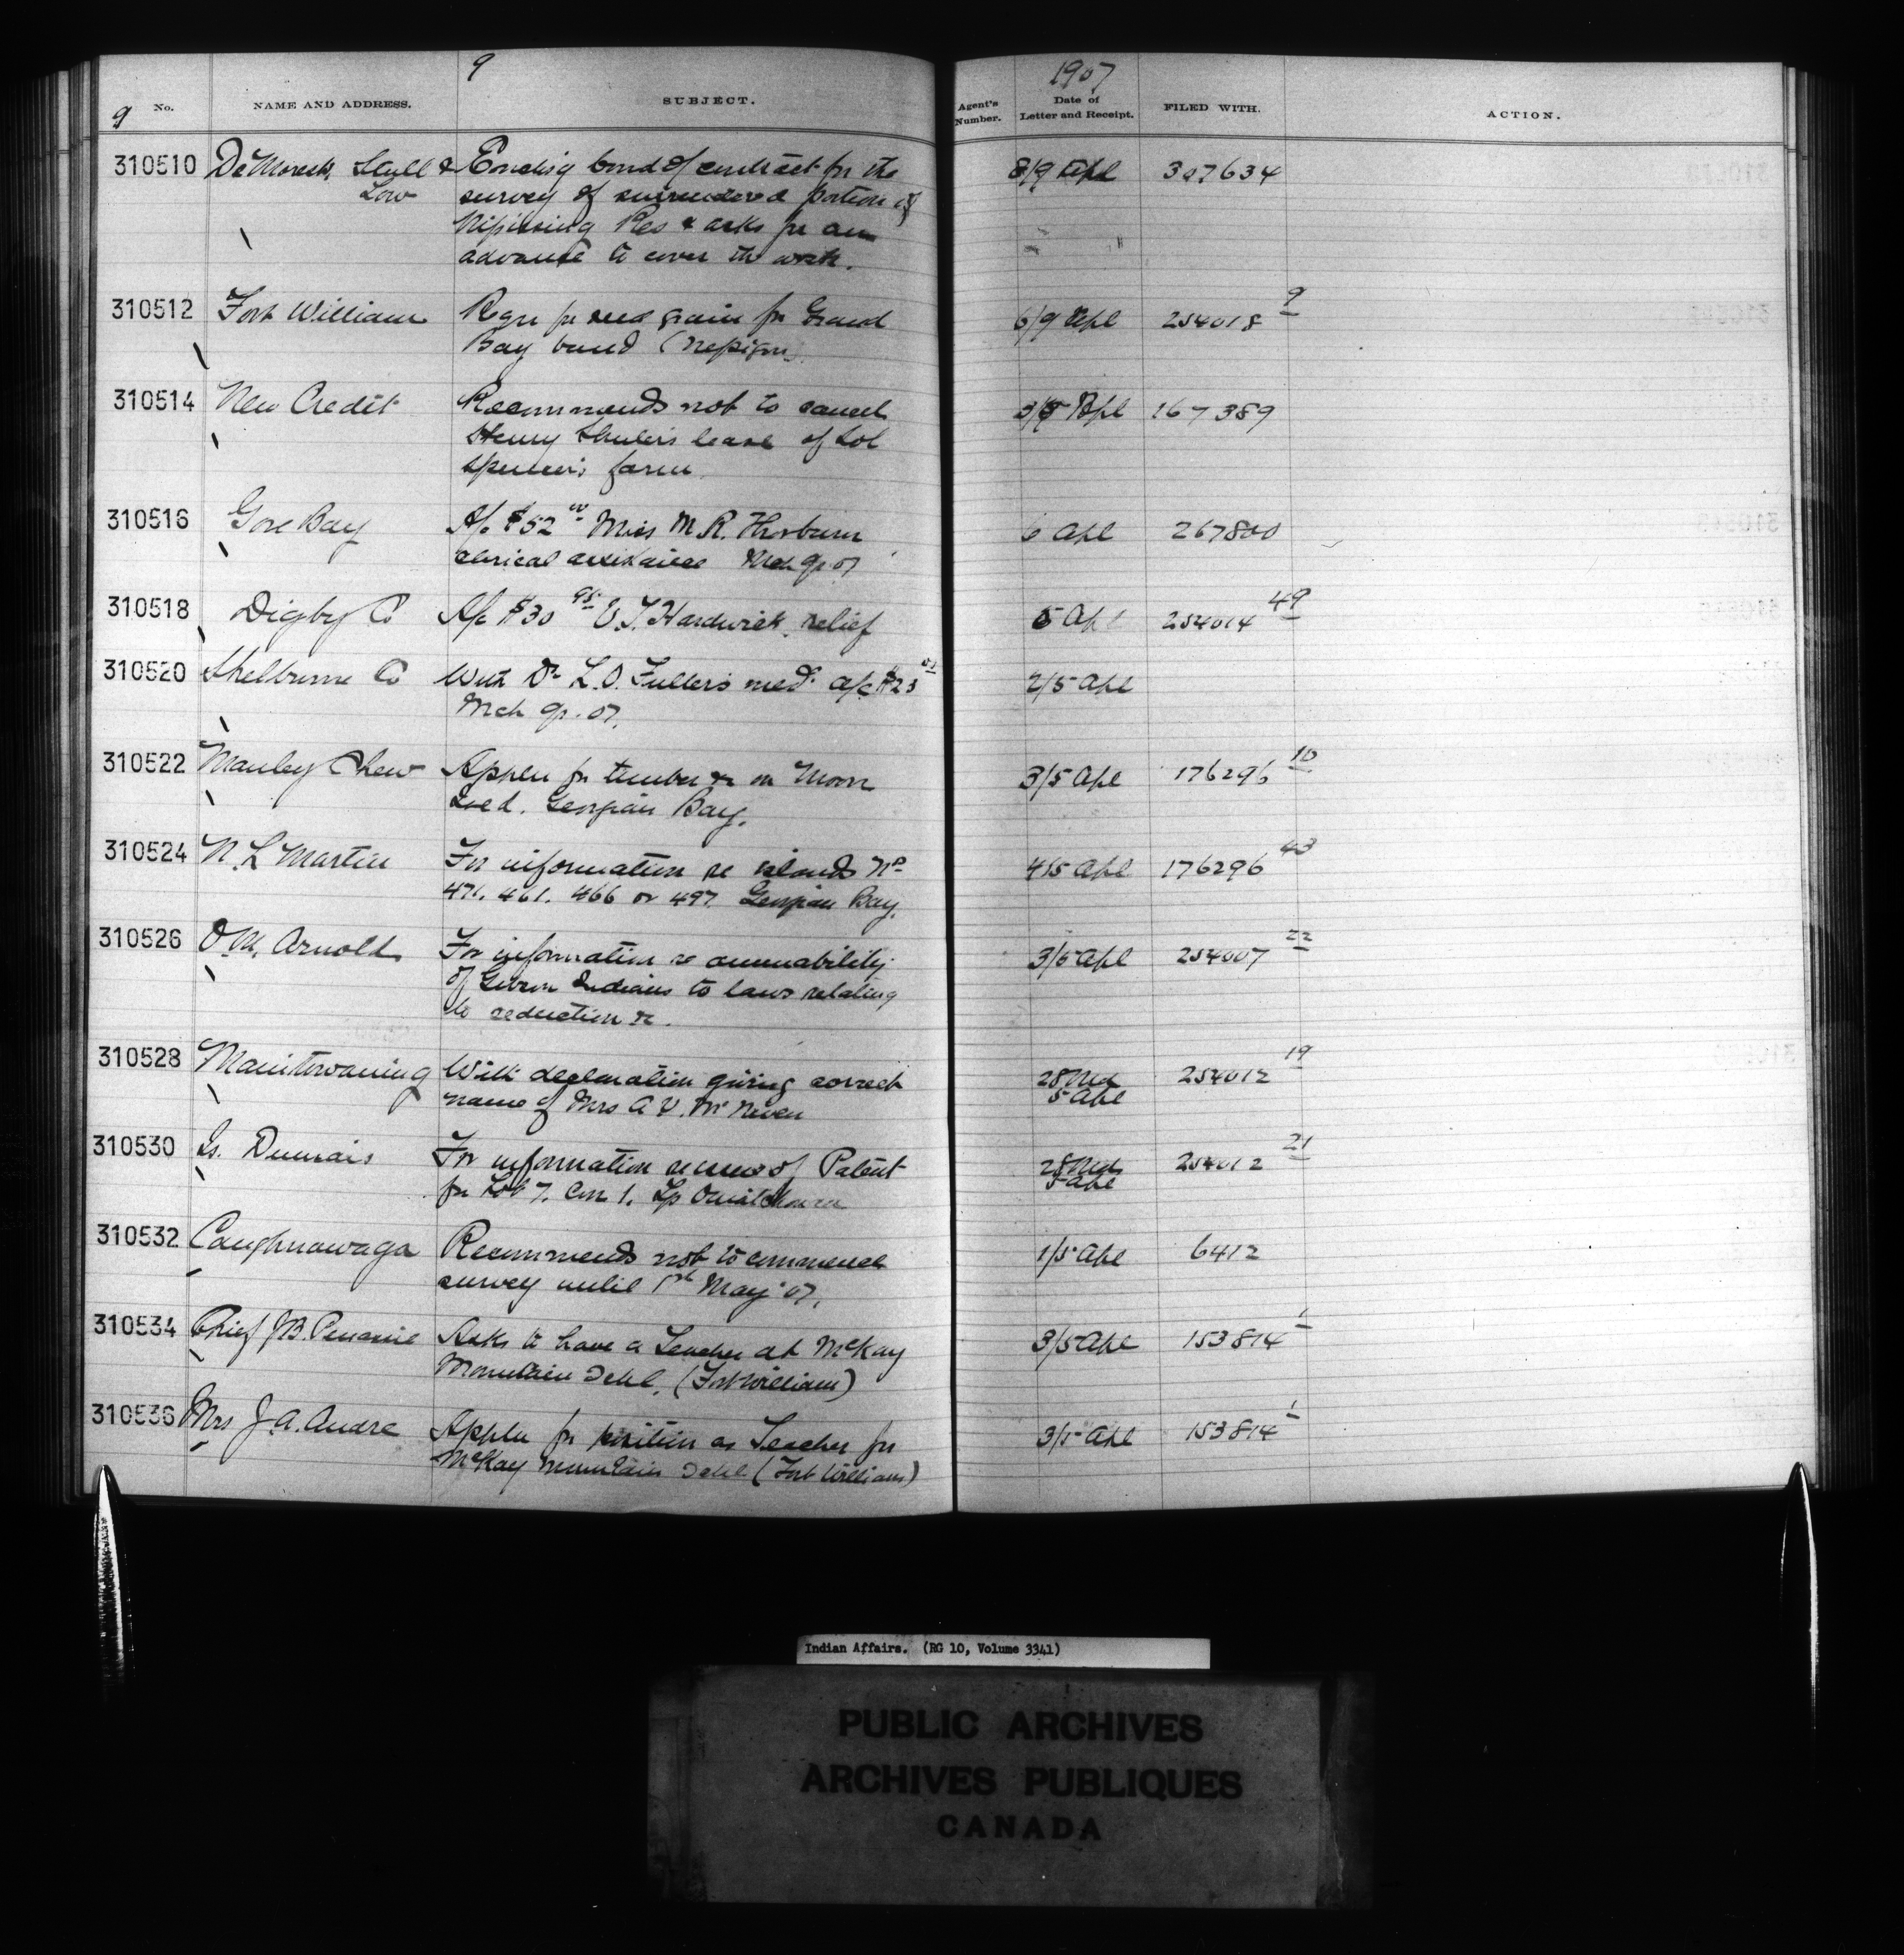 9
1907
9 No. NAME AND ADDRESS. SUBJECT. Agent's Number. Date of Letter and Receipt. FILED WITH. ACTION.
310510 DeMorest, Stull & Encloses bond of contract for the 8/9 Apl 307634
Low survey of surrendered portion of
Nipissing Res & asks for an
advance to cover the work.
310512 Fort William Reqn for seed grain for Grand 6/9 Apl 254018 9
Bay band (Nepigon)
310514 New Credit Recommends not to cancel 3/5 Apl 167389
Henry lease of Sol
Spencer's farm
310516 Gore Bay A/c $52 00 Miss M. R. Thorburn 6 Apl 267800
clerical assistance Mch qr 07
310518 Digby Co A/c $30 95 Hardwick relief 5 Apl 254014 49
310520 Shelburne Co With Dr L. O. Fuller's med. a/c $23 2/5 Apl
Mch qr. 07.
310522 Manley Chew Appln for timber &c on Moon 3/5 Apl 176296 10
Isld. Georgian Bay.
310524 N. L Martin For information re islands No 4/5 Apl 176296 43
471. 461. 466 or 497 Georgian Bay.
310526 O. M. Arnold For information re amenability 3/5 Apl 254007 22
of Gibson Indians to laws relating
to seduction &c.
310528 Manitowaning With declaration giving correct 28 Mch 254012 19
name of Mrs A. V. McNeven 5 Apl
310530 Is. Dumais For information re issue of Patent 28 Mch 254012 21
for Lot 7. Con 1. Tp 5 Apl
310532 Caughnawaga Recommends not to commence 1/5 Apl 6412
survey until 1st May '07.
310534 Chief J. B. Penassie Asks to have a Teacher at McKay 3/5 Apl 153814 1
Mountain Schl. (Fort William)
310536 Mrs J. A. Andre Appln for position as Teacher for 3/5 Apl 153814 1
McKay Mountain Schl (Fort William)
Indian Affairs. (RG 10, Volume 3341)
PUBLIC ARCHIVES
ARCHIVES PUBLIQUES
CANADA